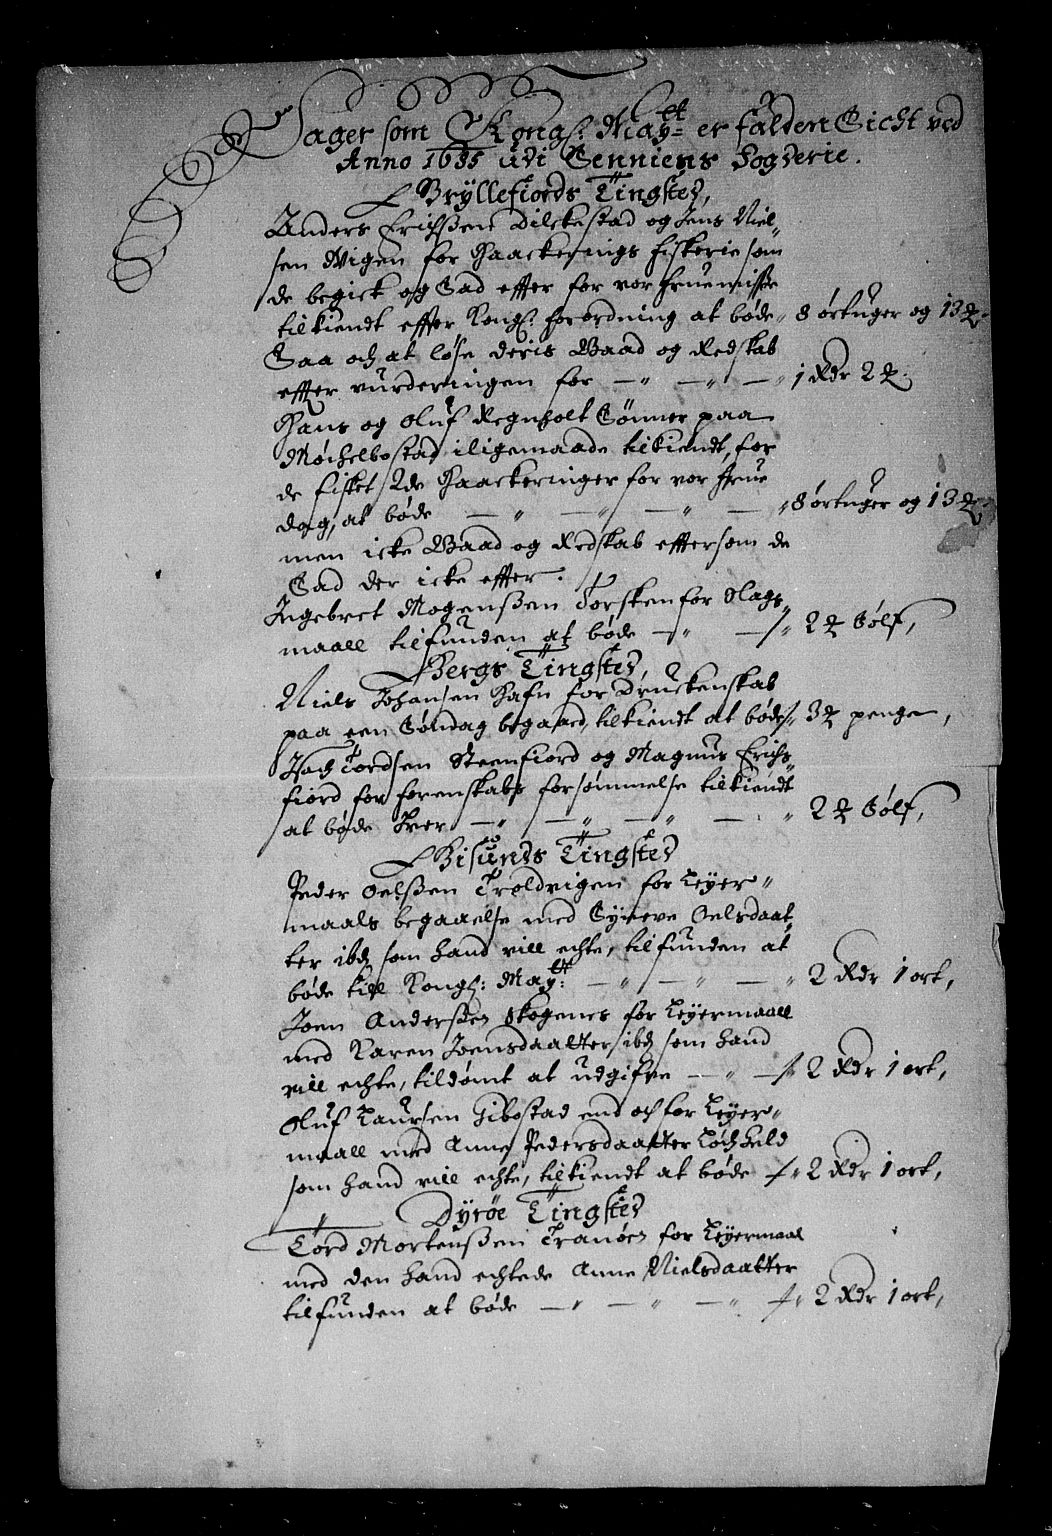 Sager som Kongl: May:tt er falden Sicht ved
Anno 1685 udi Senniens Fogderie.
Bryllefiords Tingsted,
Anders Erichsen Dilckestad og Jens Niel-
sen Wigen for Haackerings fiskerie som
de begick og Sad effter for vor fruemisse
tilkiendt effter Kongl: forordning at bøde 8 örtuger og 13 ꝳ:
Saa och at løse deris Baad og Redskab
effter vurderingen for — — — 1 Rdr 2 ꝳ:
Hans og Oluf Regnholt Sønner paa
Møchelbostad iligemaade tilkiendt, for
de fisket 2de Haackeringer for vor frue
dag, at bøde — — — — 8 örtuger og 13 ꝳ
men icke Baad og Redskab effttersom de
Sad der icke effter.
Ingebret Mogensen Torsken for Slags-
maall tilfunden at bøde — — 2 ꝳ Sølf,
Bergs Tingsted,
Niels Johansen Hafn for Druckenskab
paa een Søndag begaaed, tilkiendt at bøde 3 ꝳ penge,
Isach Tordsen Steenfiord og Magnus Erichs-
fiord for forenskabs forsømmelse tilkiendt
at bøde Hver — — — — 2 ꝳ Sølf,
Gisunds Tingsted
Peder Oelsen Troldvigen for Leyer-
maals begaaelse med Synneve Oelsdaat-
ter ibd som hand vill echte, tilfunden at
bøde till Kongl: May:tt — — — 2 Rdr 1 ort,
Joen Andersen Skogenes for Leyermaall
med Karen Joensdaatter ibd som hand
vill echte, tildømt at udgifve — — 2 Rdr 1 ort,
Oluf Laursen Gibostad end och for Leyer-
maall med Anne Pedersdaatter Løchheld
som hand vill echte, tilkiendt at bøde 2 Rdr 1 ort,
Dyrøe Tingsted
Tord Mortensen Tranøen for Leyermaal
med den hand echtede Anne Nielsdaatter
tilfunden at bøde — — — 2 Rdr 1 ort,